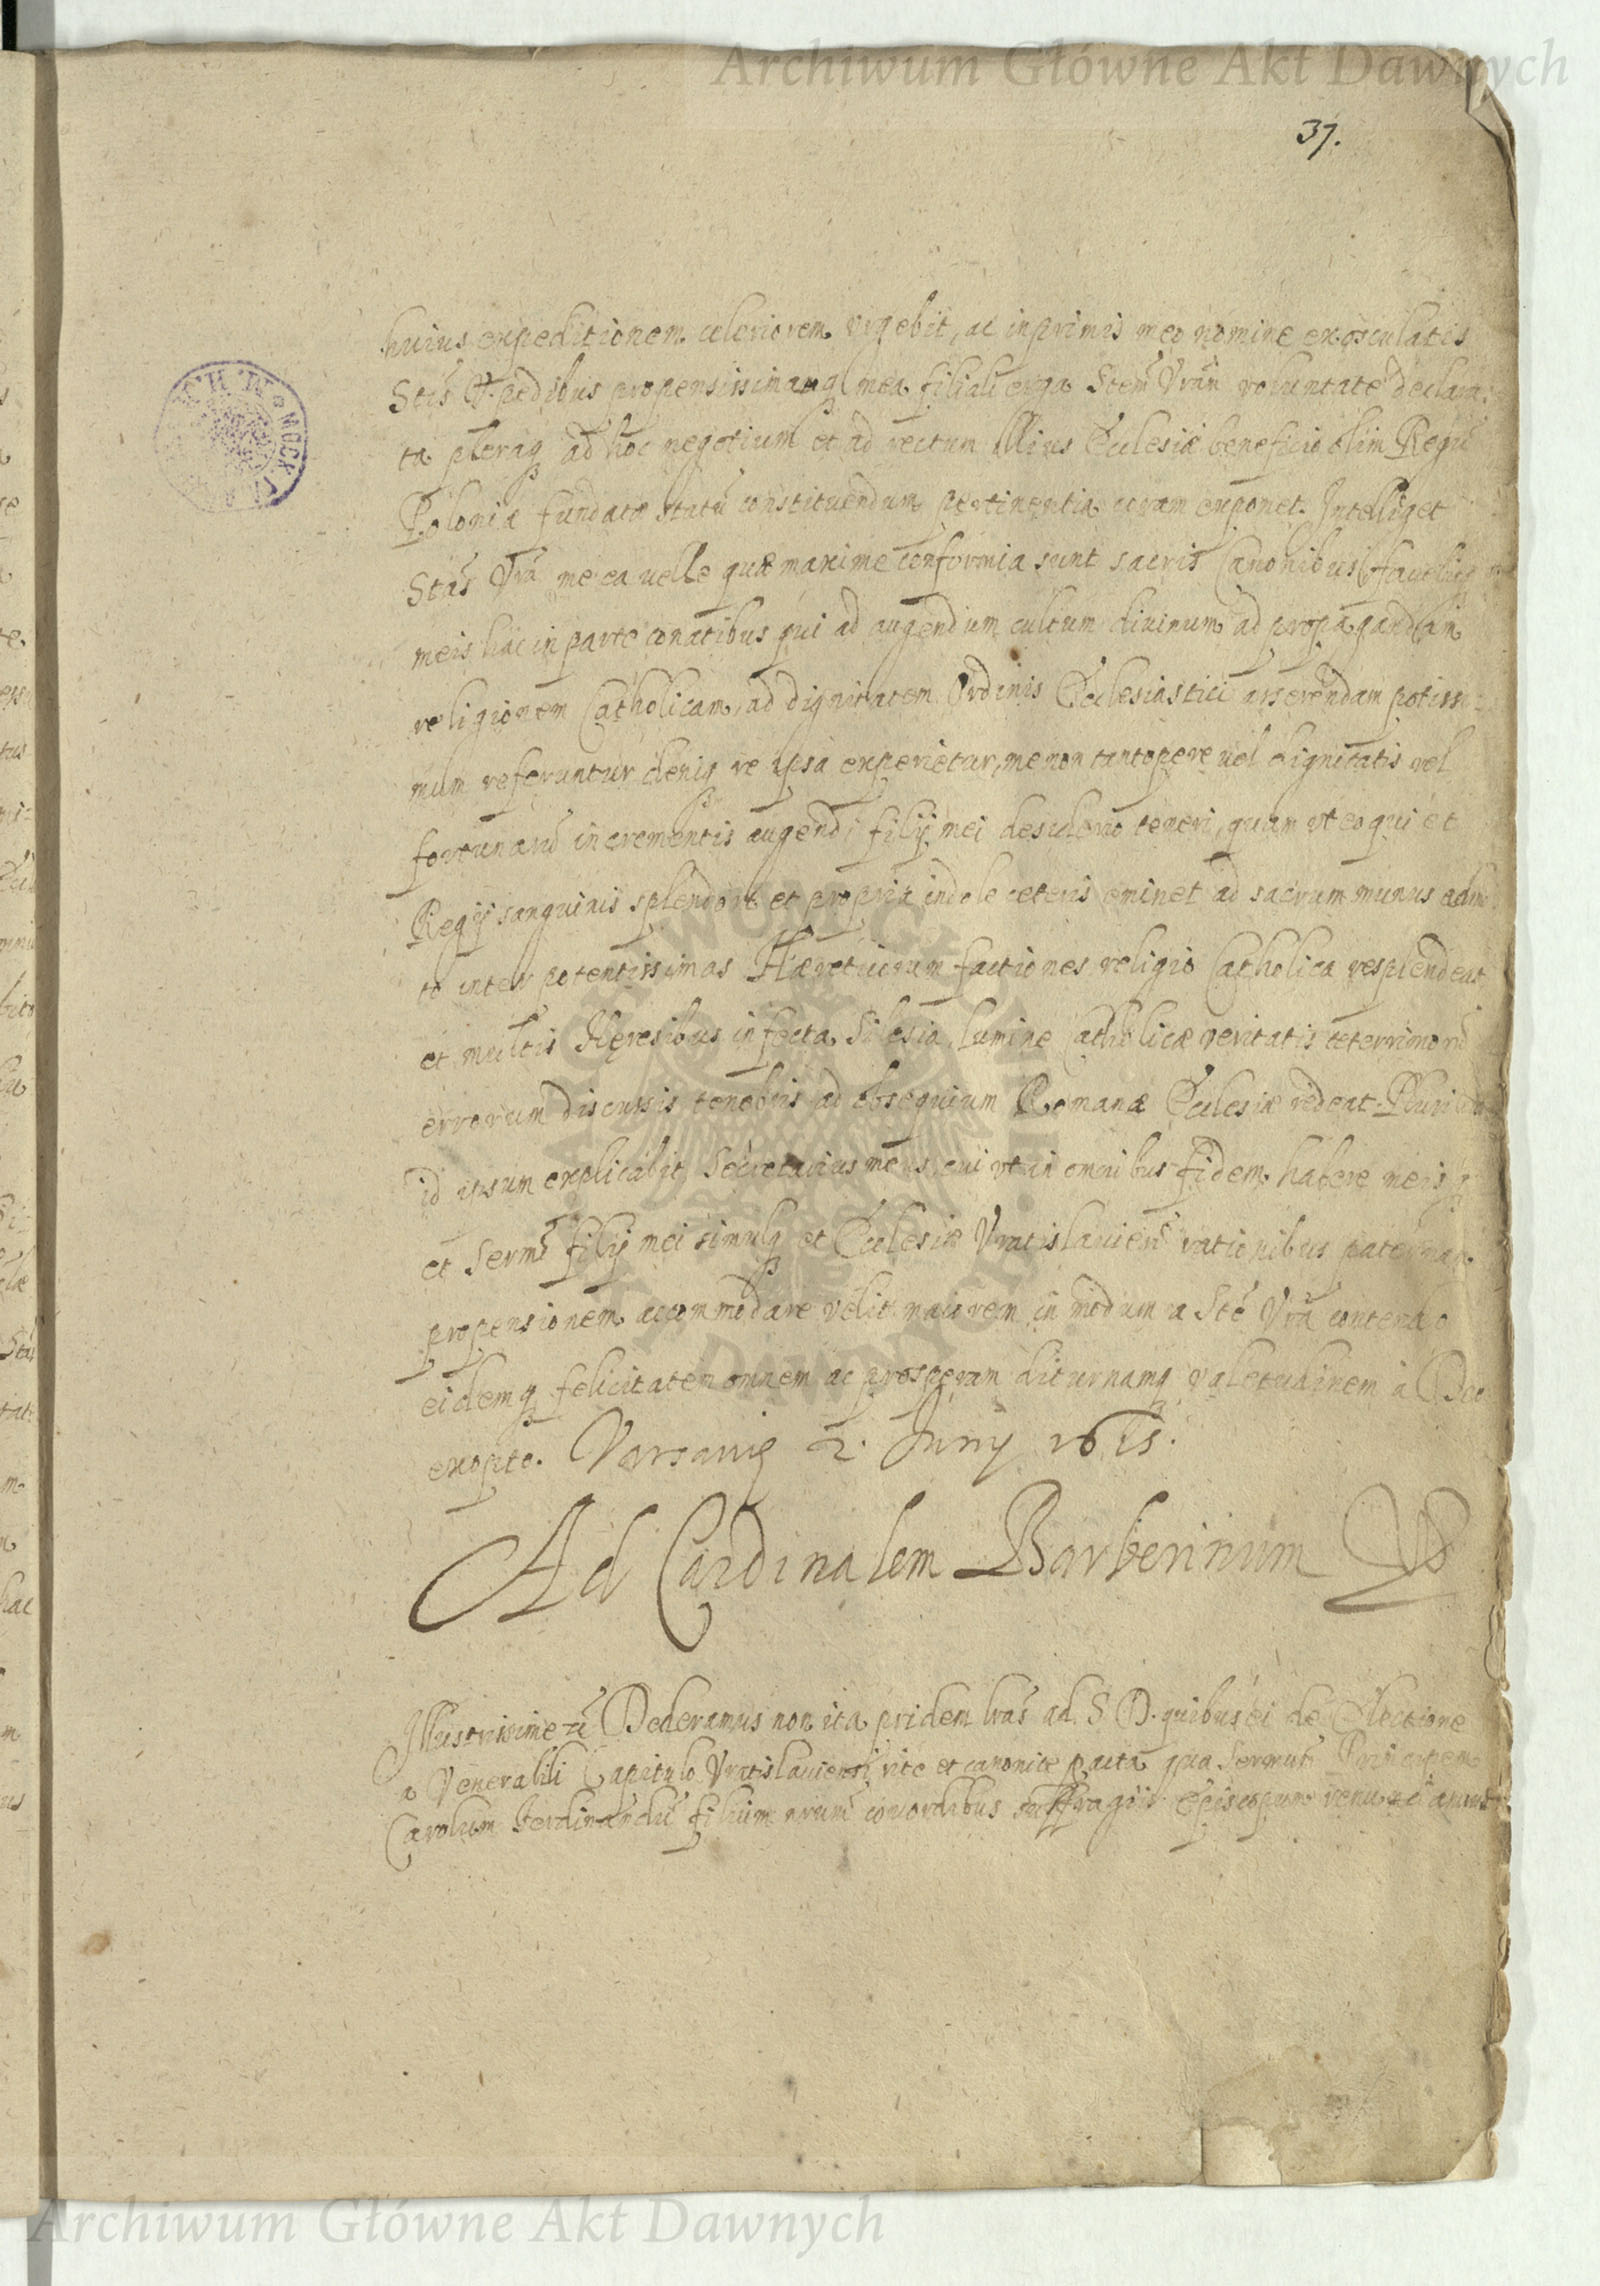 Archiwum Główne Akt Dawnych
37.
huius expeditionem celeriorem urgebit, ac inprimis meo nomine exosculatis
Stis V. pedibus propensissimaq mea filiali erga Stem Vram voluntate declara:
ta pleraq ad hoc negotium et ad rectum illius Ecclesiæ beneficio olim Regu
Poloniæ fundatæ statu constituendum pertinentia coram exponet. Intelliget
Stas Vra me ea velle quæ maxime conformia sunt sacris Canonibus
meis hac in parte conatibus qui ad augendum cultum divinum ad propagandam
religionem Catholicam, ad dignitatem Ordinis Ecclesiastici asserendam potissi:
mum referuntur deniq re ipsa experietur, me non tantopere vel dignitatis vel
fortunaru incrementis augendi filij mei desiderio teneri, quam ut eo qui et
Regij sanguinis splendore et propria indole ceteris eminet ad sacrum munus admo
to inter potentissimas Hæreticorum factiones religio Catholica resplendeat
et multis Heresibus infecta Silesia, lumine Catholicæ veritatis teterrimoru
errorum discussis tenebris ad obsequium Romanæ Ecclesiæ redeat. Pluribus
id ipsum explicabit Secretarius meus, cui ut in omnibus fidem habere meis q
et Sermi filij mei simulq et Ecclesiæ Vratislavien rationibus paternam
propensionem accommodare velit maiorem in modum a Ste Vra contendo
eidemq felicitatem omnem ac prosperam diuturnamq valetudinem à Deo
exopto. Varsaviæ 2. Junij
Ad Cardinalem Barberinum
Illustrissime Dederamus non ita pridem lras ad S. D. quibus ei de Electione
a Venerabili Capitulo Vratislaviensi rite et canonice pacta qua Sermum Principem
Carolum Ferdinandu filium nrum concordibus suffragijs Episcopum
Archiwum Główne Akt Dawnych